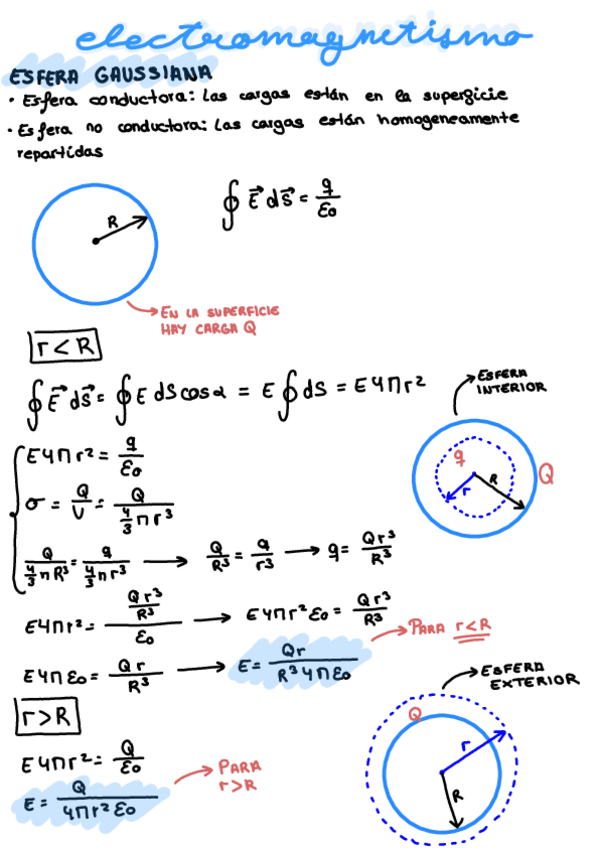 electromagnetismo
ESFERA GAUSSIANA
• Esfera conductora: Las cargas están en la superficie
• Esfera no conductora: Las cargas están homogeneamente
repartidas
R
∮ E⃗ dS⃗ = q/ε₀
→ EN LA SUPERFICIE
HAY CARGA Q
r < R
∮ E⃗ dS⃗ = ∮ E dS cos α = E ∮ dS = E4πr²
→ ESFERA
INTERIOR
q Q
r R
E4πr² = q/ε₀
σ = Q/V = Q/(4/3 π r³)
Q/(4/3 π R³) = q/(4/3 π r³) → Q/R³ = q/r³ → q = Qr³/R³
E4πr² = (Qr³/R³)/ε₀ → E4πr²ε₀ = Qr³/R³
→ PARA r<R
E4πε₀ = Qr/R³ → E = Qr/(R³4πε₀)
→ ESFERA
EXTERIOR
r > R
Q
r
R
E4πr² = Q/ε₀
→ PARA
r>R
E = Q/(4πr²ε₀)